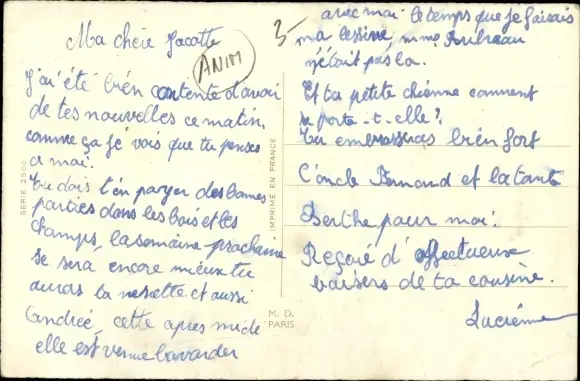 Ma chère Jacotte
J'ai été bien contente d'avoir
de tes nouvelles ce matin,
comme ça je vois que tu penses
a moi.
Tu dois t'en payer des bonnes
parties dans les bois et les
champs, la semaine prochaine
se sera encore mieux tu
auras ta et aussi
Andrée, cette apres midi
elle est venue bavarder
ANIM
3-
avec moi le temps que je faisais
ma lessive, mme
n'était pas la.
Et ta petite chienne comment
se porte-t-elle?
Tu embrassras bien fort
l'oncle et la tante
Berthe pour moi.
Reçoie d'affectueux
baisers de ta cousine.
Lucienne
SERIE 2500
IMPRIMÉ EN FRANCE
M. D.
PARIS